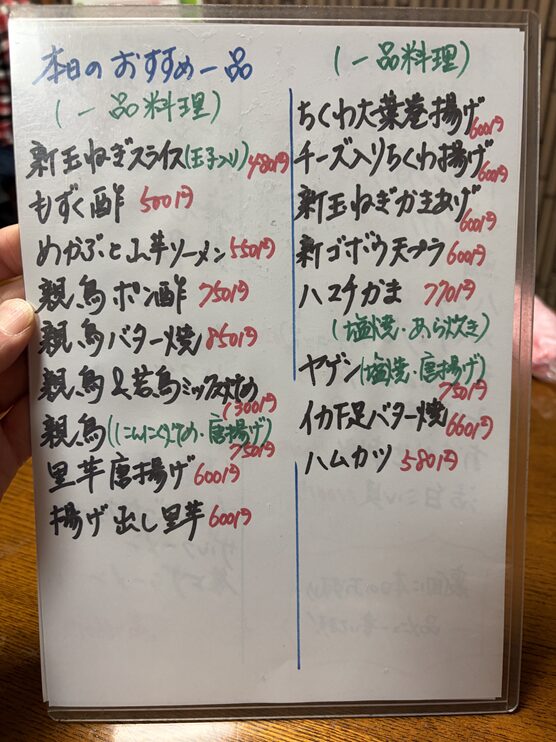 本日のおすすめ一品
(一品料理)
新玉ねぎスライス(玉子入り) 480円
もずく酢 500円
めかぶと山芋ソーメン 550円
親鳥ポン酢 750円
親鳥バター焼 850円
親鳥&若鳥ミックス炒め
1300円
親鳥(にんにく炒め・唐揚げ)
750円
里芋唐揚げ 600円
揚げ出し里芋 600円
(一品料理)
ちくわ大葉巻揚げ 600円
チーズ入りちくわ揚げ 600円
新玉ねぎかきあげ
600円
新ゴボウ天プラ 600円
ハマチかま 770円
(塩焼・あら炊き)
ヤゲン(塩焼・唐揚げ)
750円
イカ下足バター焼 660円
ハムカツ 580円